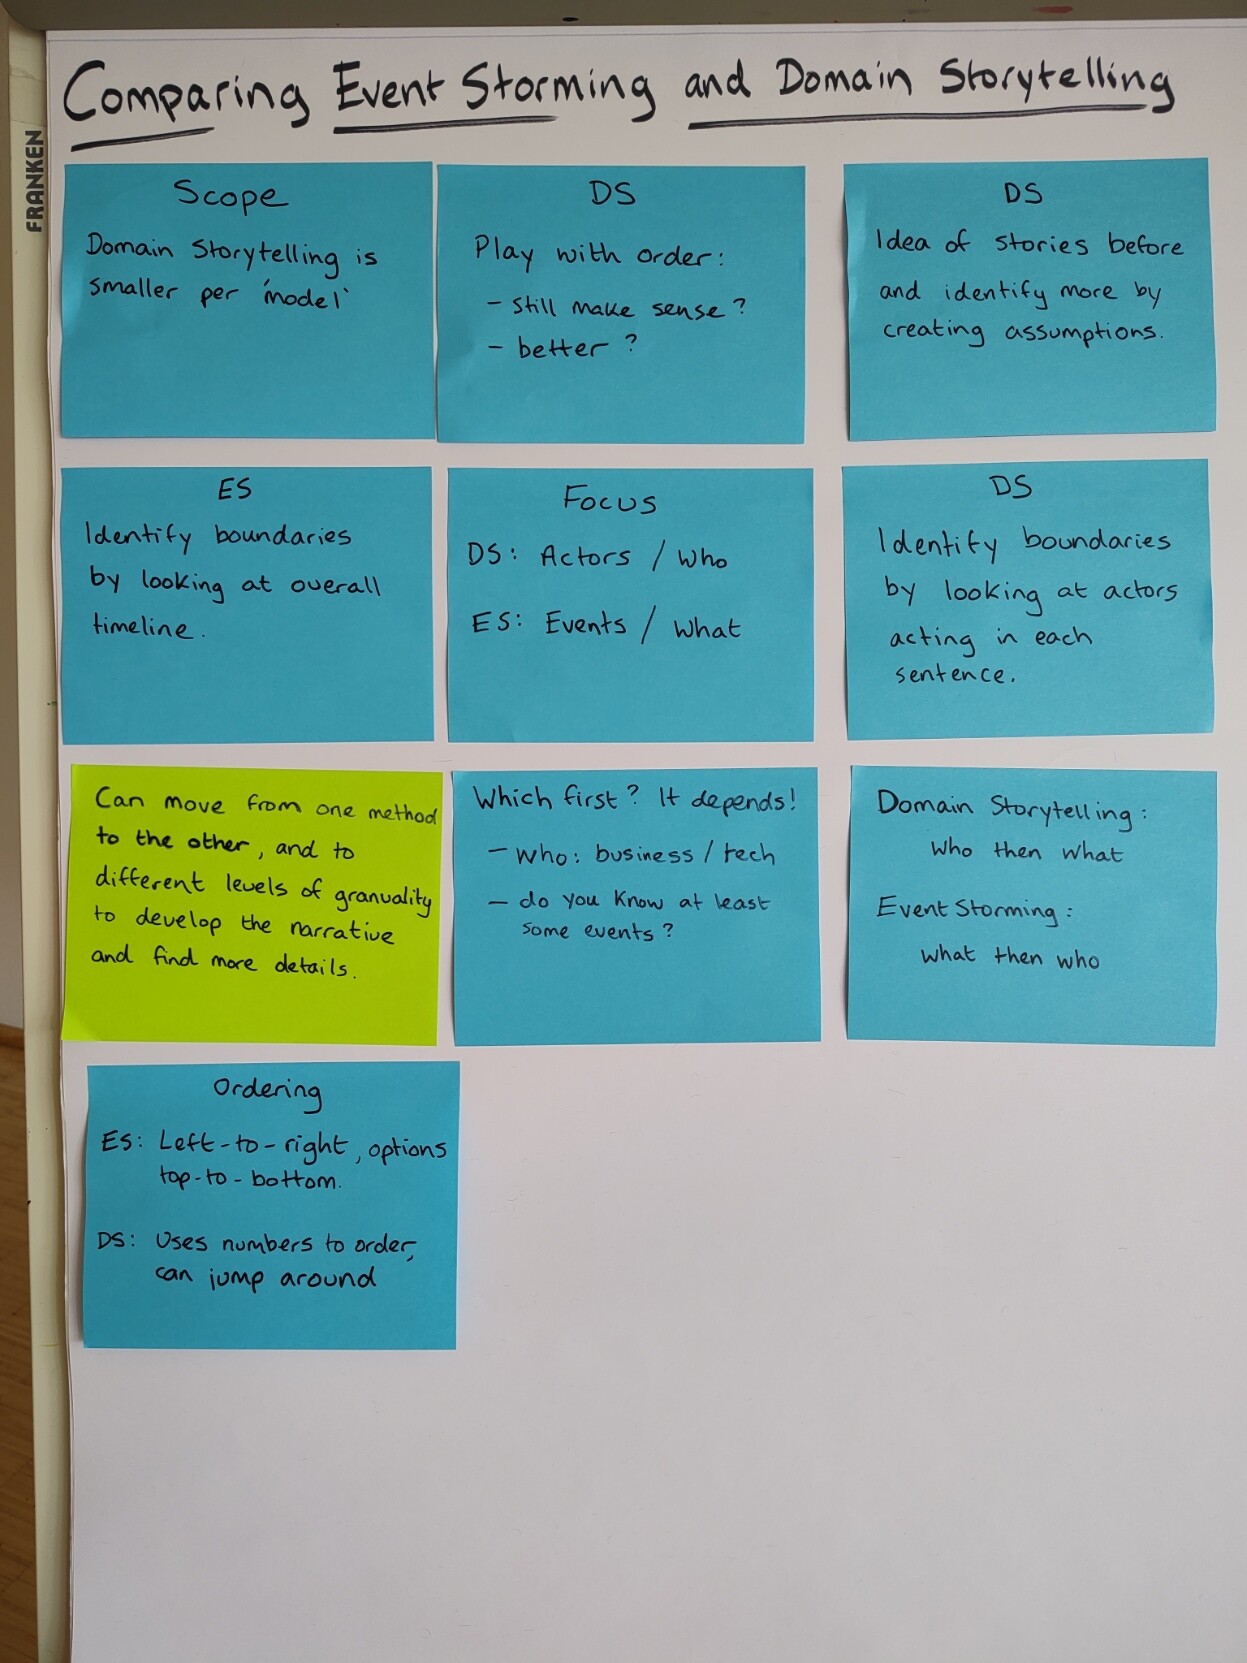 Comparing Event Storming and Domain Storytelling
FRANKEN
Scope
Domain Storytelling is
smaller per 'model'
DS
Play with order:
- still make sense?
- better?
DS
Idea of stories before
and identify more by
creating assumptions.
ES
Identify boundaries
by looking at overall
timeline.
Focus
DS: Actors / who
ES: Events / what
DS
Identify boundaries
by looking at actors
acting in each
sentence.
Can move from one method
to the other, and to
different levels of granuality
to develop the narrative
and find more details.
Which first? It depends!
- who: business / tech
- do you know at least
some events?
Domain Storytelling:
who then what
Event Storming:
what then who
Ordering
ES: Left-to-right, options
top-to-bottom.
DS: Uses numbers to order,
can jump around